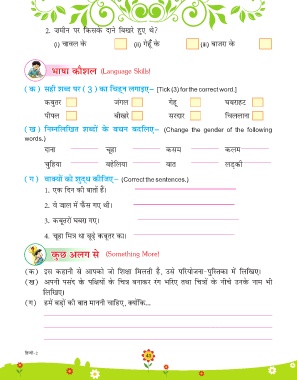 2. ज़मीन पर किसके दाने बिखरे हुए थे?
(i) चावल के (ii) गेहूँ के (iii) बाजरा के
भाषा कौशल (Language Skills)
(क) सही शब्द पर (3) का चिह्न लगाइए- [Tick (3) for the correct word.]
कबुतर जंगल गेहू घबराहट
पीपल बीखरे सरदार चिल्लाना
(ख) निम्नलिखित शब्दों के वचन बदलिए- (Change the gender of the following
words.)
दाना चूहा कसम कलम
चुहिया बहेलिया बात लड़की
(ग) वाक्यों को शुद्ध कीजिए- (Correct the sentences.)
1. एक दिन की बातों हैं।
2. वे जाल में फँस गए थी।
3. कबूतरों घबरा गए।
4. चूहा मित्र था बूढ़े कबूतर का।
कुछ अलग से (Something More!)
(क) इस कहानी से आपको जो शिक्षा मिलती है, उसे परियोजना-पुस्तिका में लिखिए।
(ख) अपनी पसंद के पक्षियों के चित्र बनाकर रंग भरिए तथा चित्रों के नीचे उनके नाम भी
लिखिए।
(ग) हमें बड़ों की बात माननी चाहिए, क्योंकि...
हिन्दी-2
45